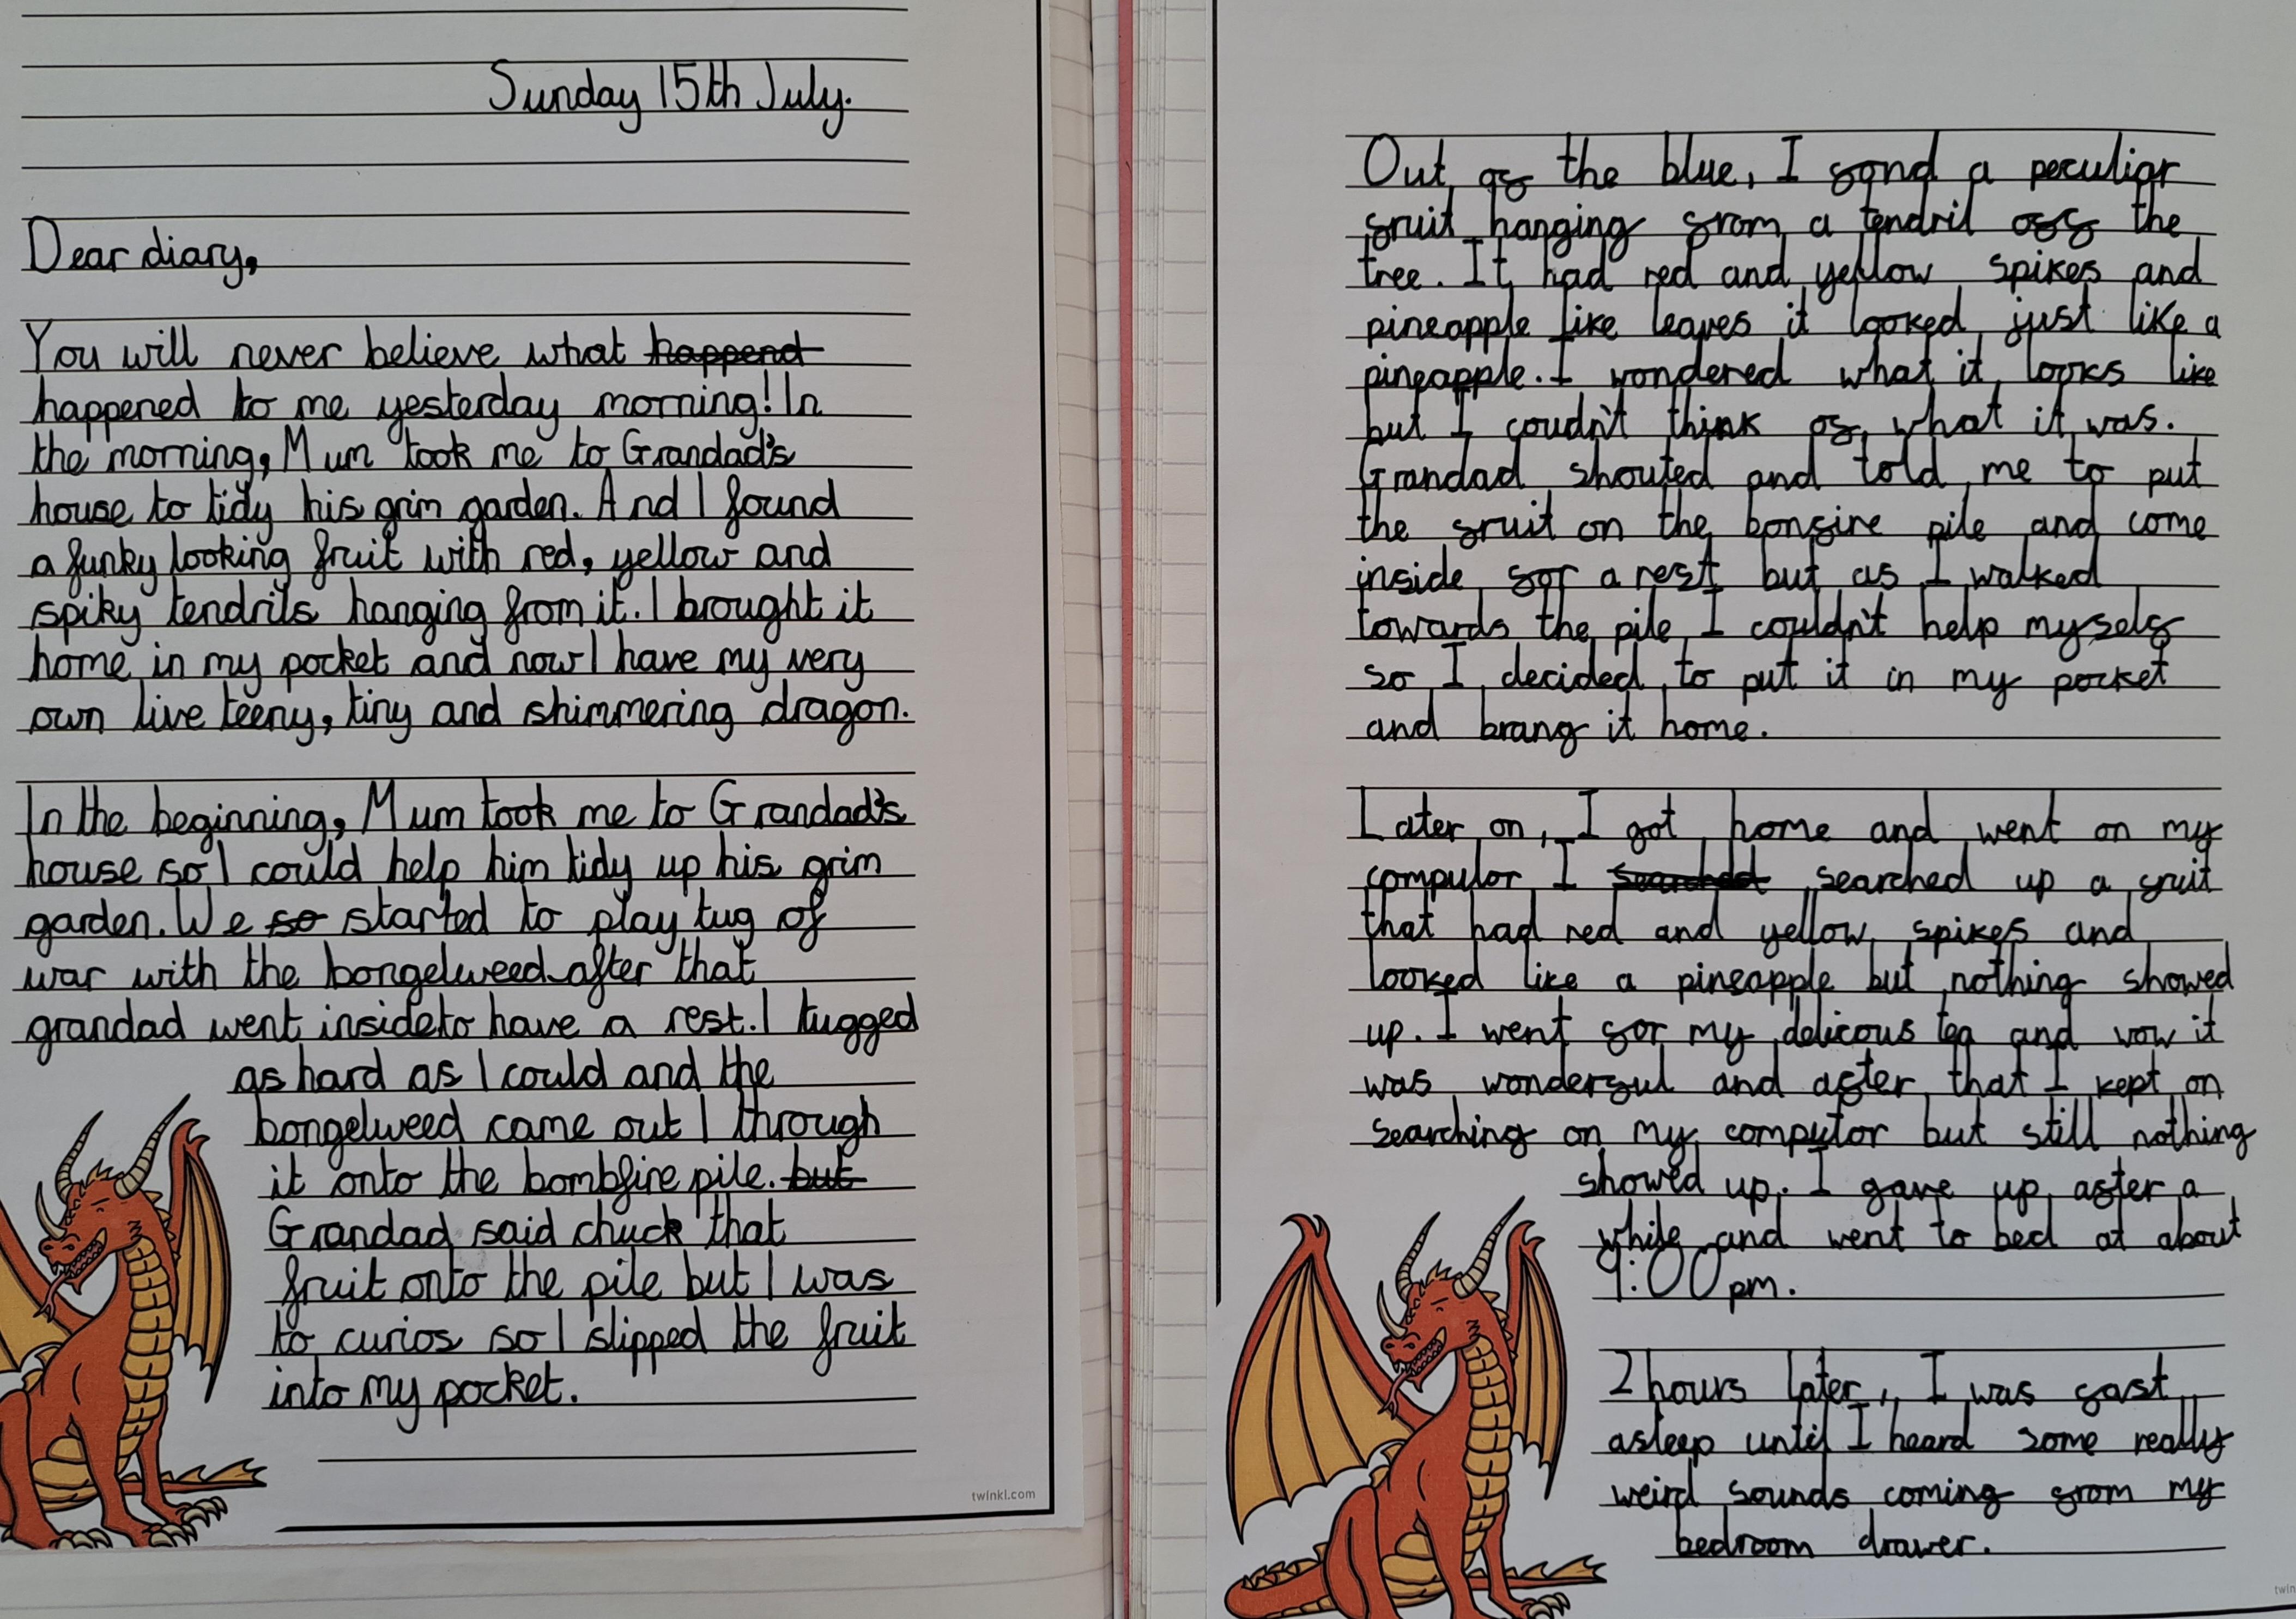 Sunday 15th July.
Dear diary,
You will never believe what happend
happened to me yesterday morning! In
the morning, Mum took me to Grandad's
house to tidy his grim garden. And I found
a funky looking fruit with red, yellow and
spiky tendrils hanging from it. I brought it
home in my pocket and now I have my very
own live teeny, tiny and shimmering dragon.
In the beginning, Mum took me to Grandad's
house so I could help him tidy up his grim
garden. We so started to play tug of
war with the bongelweed after that
grandad went inside to have a rest. I tugged
as hard as I could and the
bongelweed came out I through
it onto the bombfire pile. but
Grandad said chuck that
fruit onto the pile but I was
to curios so I slipped the fruit
into my pocket.
twinkl.com
Out of the blue, I fond a peculiar
fruit hanging from a tendril off the
tree. It had red and yellow spikes and
pineapple like leaves it looked just like a
pineapple. I wondered what it looks like
but I coudn't think of what it was.
Grandad shouted and told me to put
the fruit on the bonfire pile and come
inside for a rest but as I walked
towards the pile I couldn't help myself
so I decided to put it in my pocket
and brang it home.
Later on, I got home and went on my
computor I searched searched up a fruit
that had red and yellow spikes and
looked like a pineapple but nothing showed
up. I went for my delicous tea and wow it
was wonderful and after that I kept on
searching on my computor but still nothing
showed up. I gave up after a
while and went to bed at about
9:00 pm.
2 hours later, I was fast
asleep until I heard some really
weird sounds coming from my
bedroom drawer.
twin